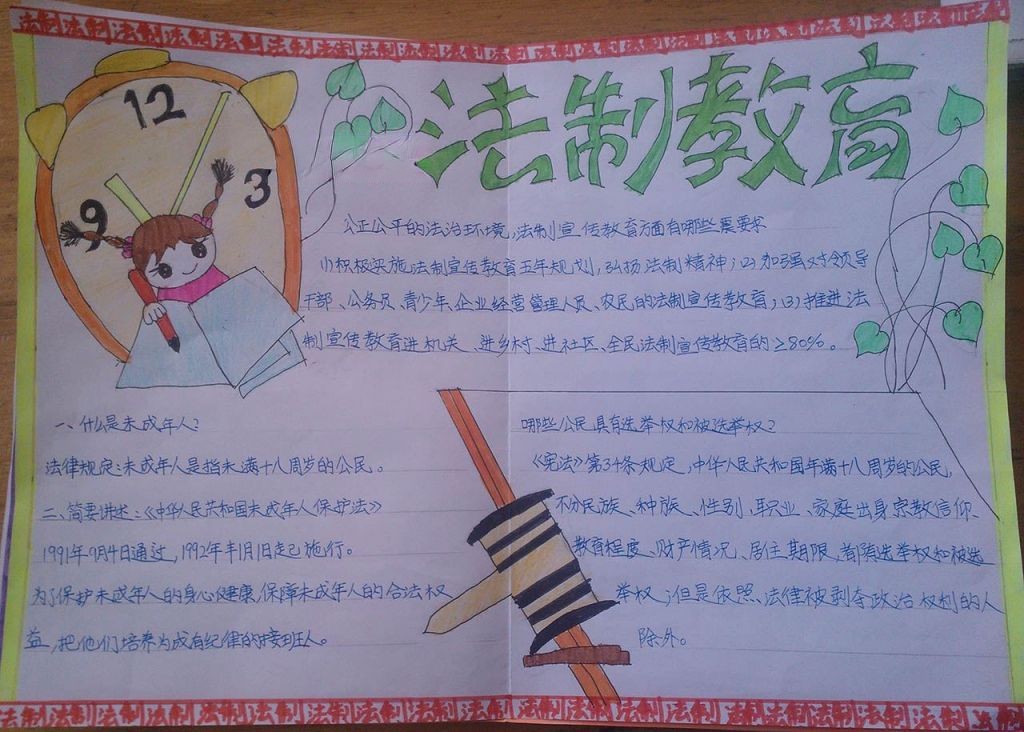 法制法制法制法制法制法制法制法制法制法制法制法制法制法制法制法制法制法制法制
法制教育
12
3
9
公正公平的法治环境,法制宣传教育方面有哪些需要求
(1)积极实施法制宣传教育五年规划,弘扬法制精神;(2)加强对领导
干部、公务员、青少年、企业经营管理人员、农民的法制宣传教育;(3)推进法
制宣传教育进机关、进乡村、进社区、全民法制宣传教育的≥80%。
一、什么是未成年人?
法律规定:未成年人是指未满十八周岁的公民。
二、简要讲述:《中华人民共和国未成年人保护法》
1991年9月4日通过,1992年1月1日起施行。
为了保护未成年人的身心健康,保障未成年人的合法权
益,把他们培养为成有纪律的接班人。
哪些公民具有选举权和被选举权?
《宪法》第34条规定,中华人民共和国年满十八周岁的公民,
不分民族、种族、性别、职业、家庭出身宗教信仰、
教育程度、财产情况、居住期限、都有选举权和被选
举权;但是依照法律被剥夺政治权利的人
除外。
法制法制法制法制法制法制法制法制法制法制法制法制法制法制法制法制法制法制法制